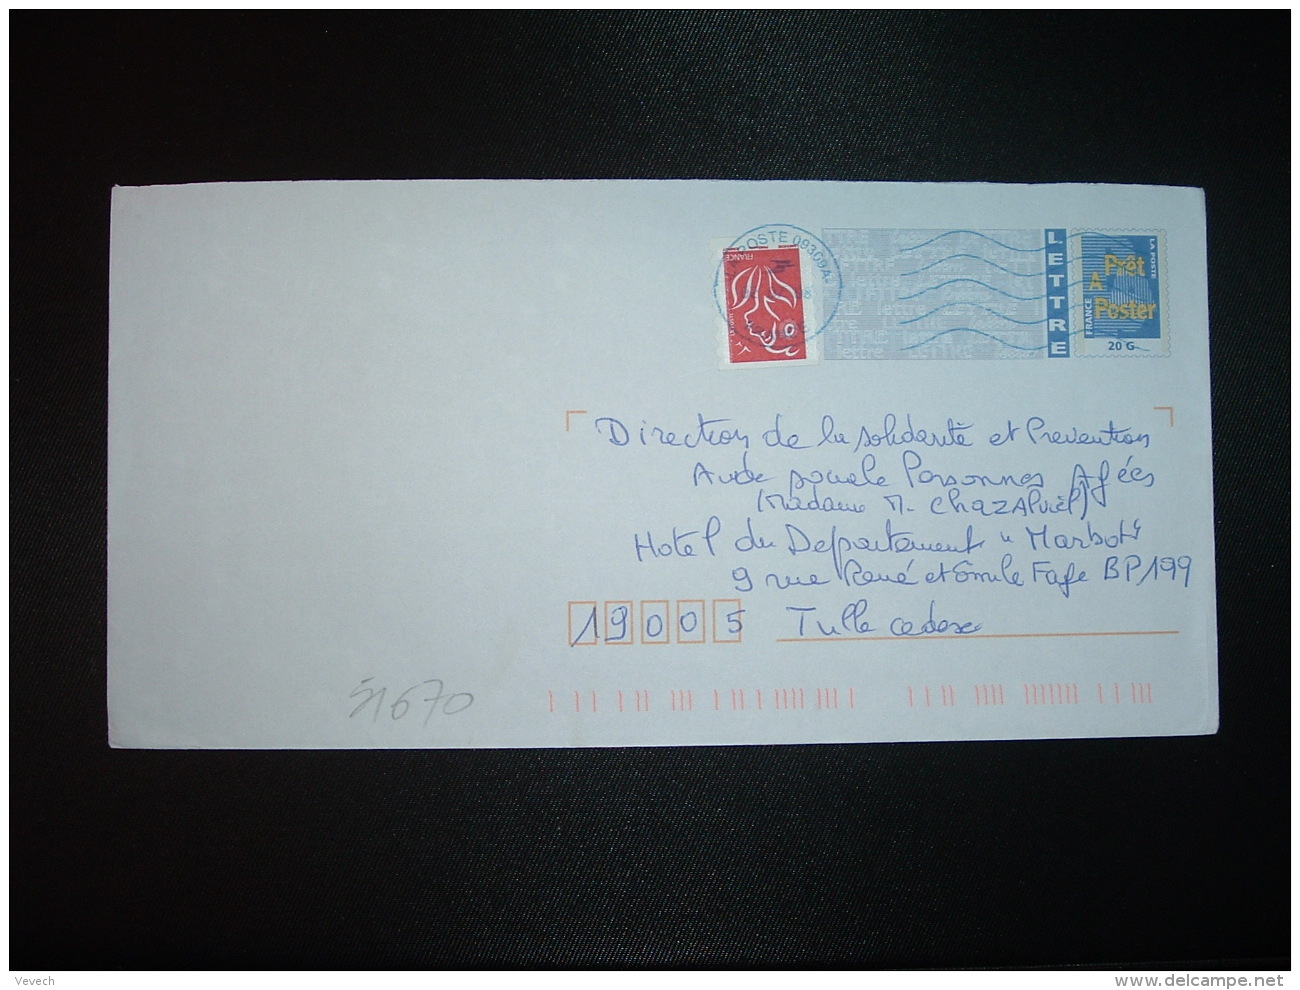 LA POSTE 09309A
FRANCE
LETTRE
LA POSTE
Prêt
A
Poster
FRANCE
20 G
Direction de la solidarité et Prevention
Aide sociale Personnes Agées
(Madame M. Chazalviel)
Hotel du Departement "Marbot"
9 rue René et Emile Fage BP 199
19005 Tulle cedex
51670
Vevech
www.delcampe.net